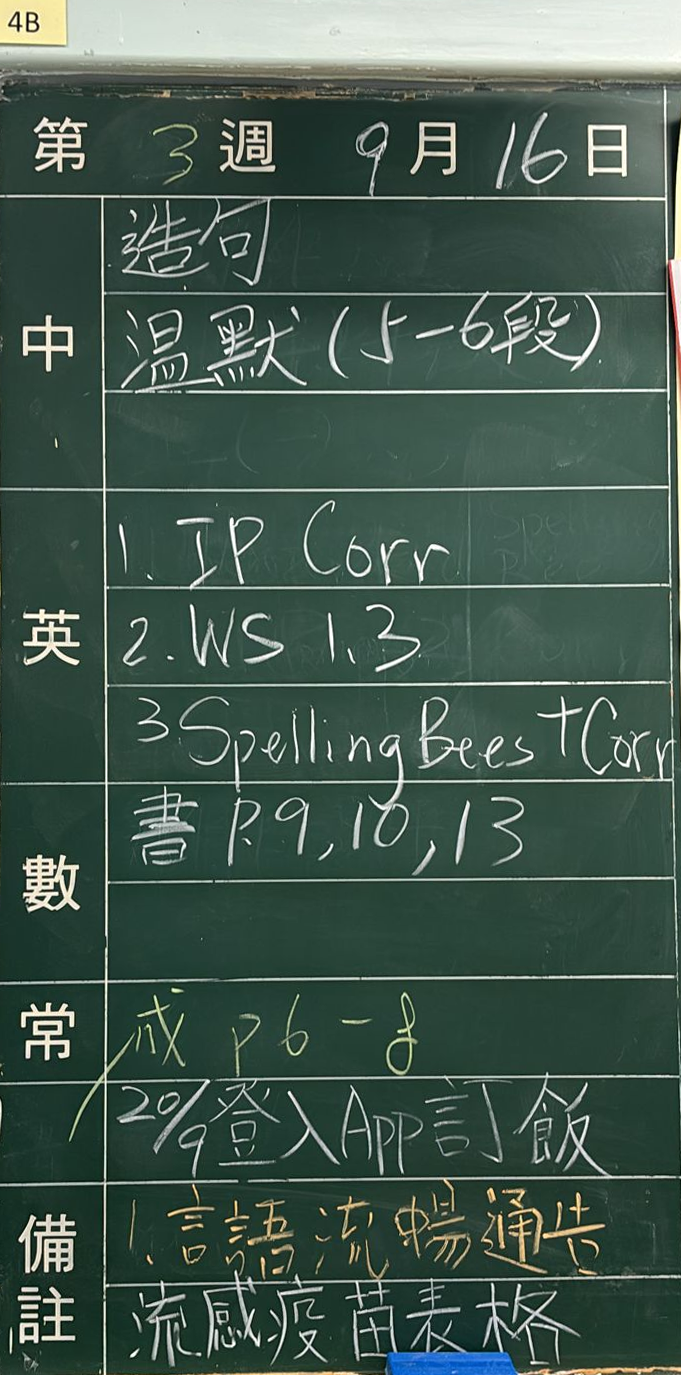 4B
第 3 週 9 月 16 日
中
造句
温默(5-6段)
英
1. IP Corr
2. WS 1.3
3 Spelling Bees + Corr
數
書 P.9,10,13
常
P 6 - 8
20/9 登入App訂飯
備註
1. 言語流暢通告
流感疫苗表格